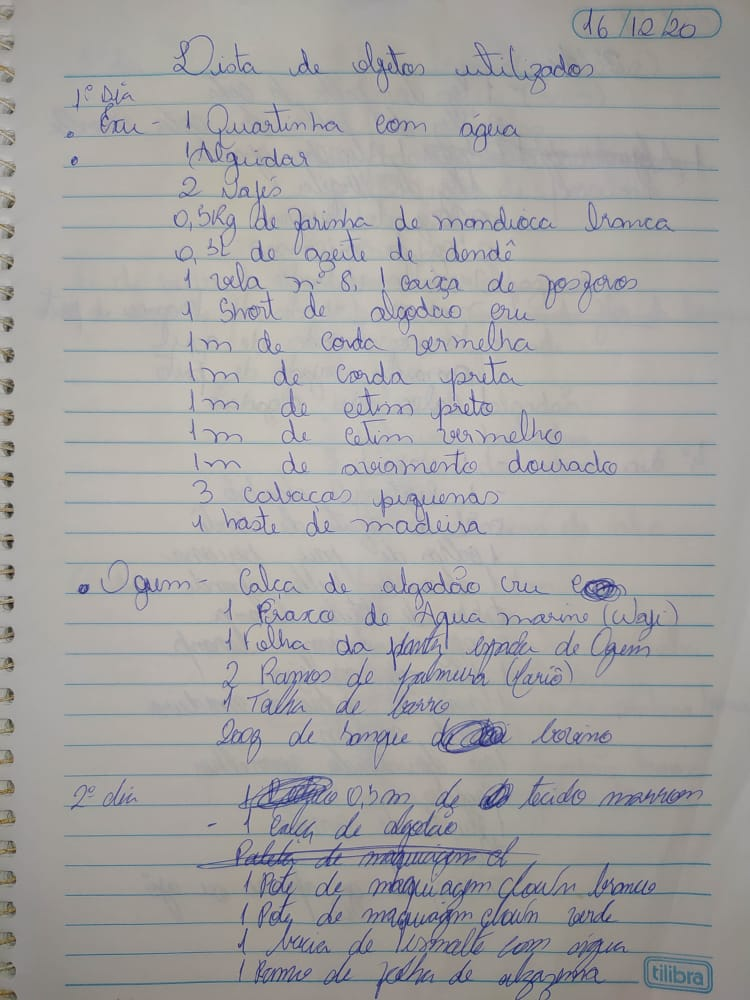 16/12/20
Lista de objetos utilizados
1º Dia
. Exu - 1 Quartinha com água
. 1 Alguidar
2 Najés
0,5Kg de farinha de mandioca branca
0,5L de azeite de dendê
1 vela nº 8, 1 caixa de fosforos
1 Short de algodão cru
1m de corda vermelha
1m de corda preta
1m de cetim preto
1m de cetim vermelho
1m de aviamento dourado
3 cabaças pequenas
1 haste de madeira
. Ogum - Calça de algodão cru
1 Fraxco de Agua marine (Waji)
1 Folha da planta espada de Ogum
2 Ramos de palmeira (Mariô)
1 Talha de barro
200g de sangue bovino
2º dia 0,5m de tecido marrom
- 1 calça de algodão
Paleta de maquiagem cl
1 Pote de maquiagem clown branco
1 Pote de maquiagem clown verde
1 bacia de Esmalte com água
1 Ramo de folha de alfazema
tilibra